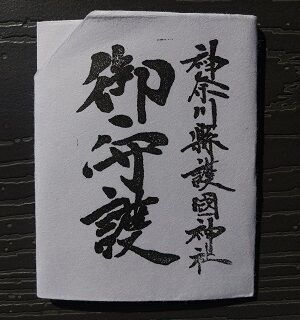 神奈川縣護國神社
御守護